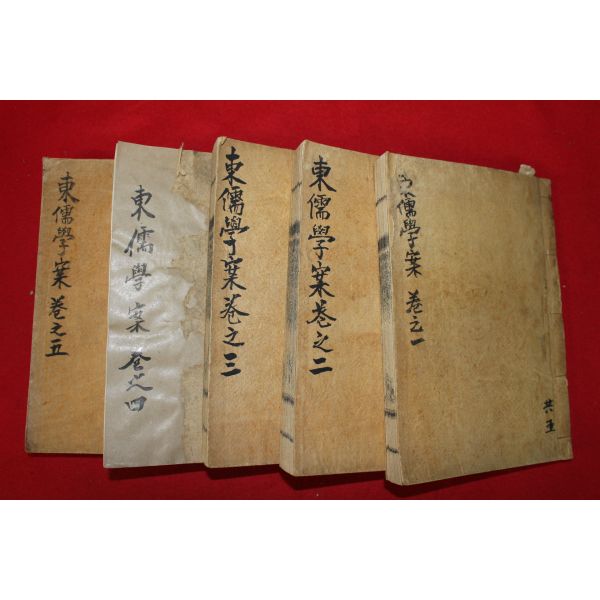 儒學案 卷之一
共五
東儒學案卷之二
東儒學案卷之三
東儒學案 卷之四
東儒學案卷之五